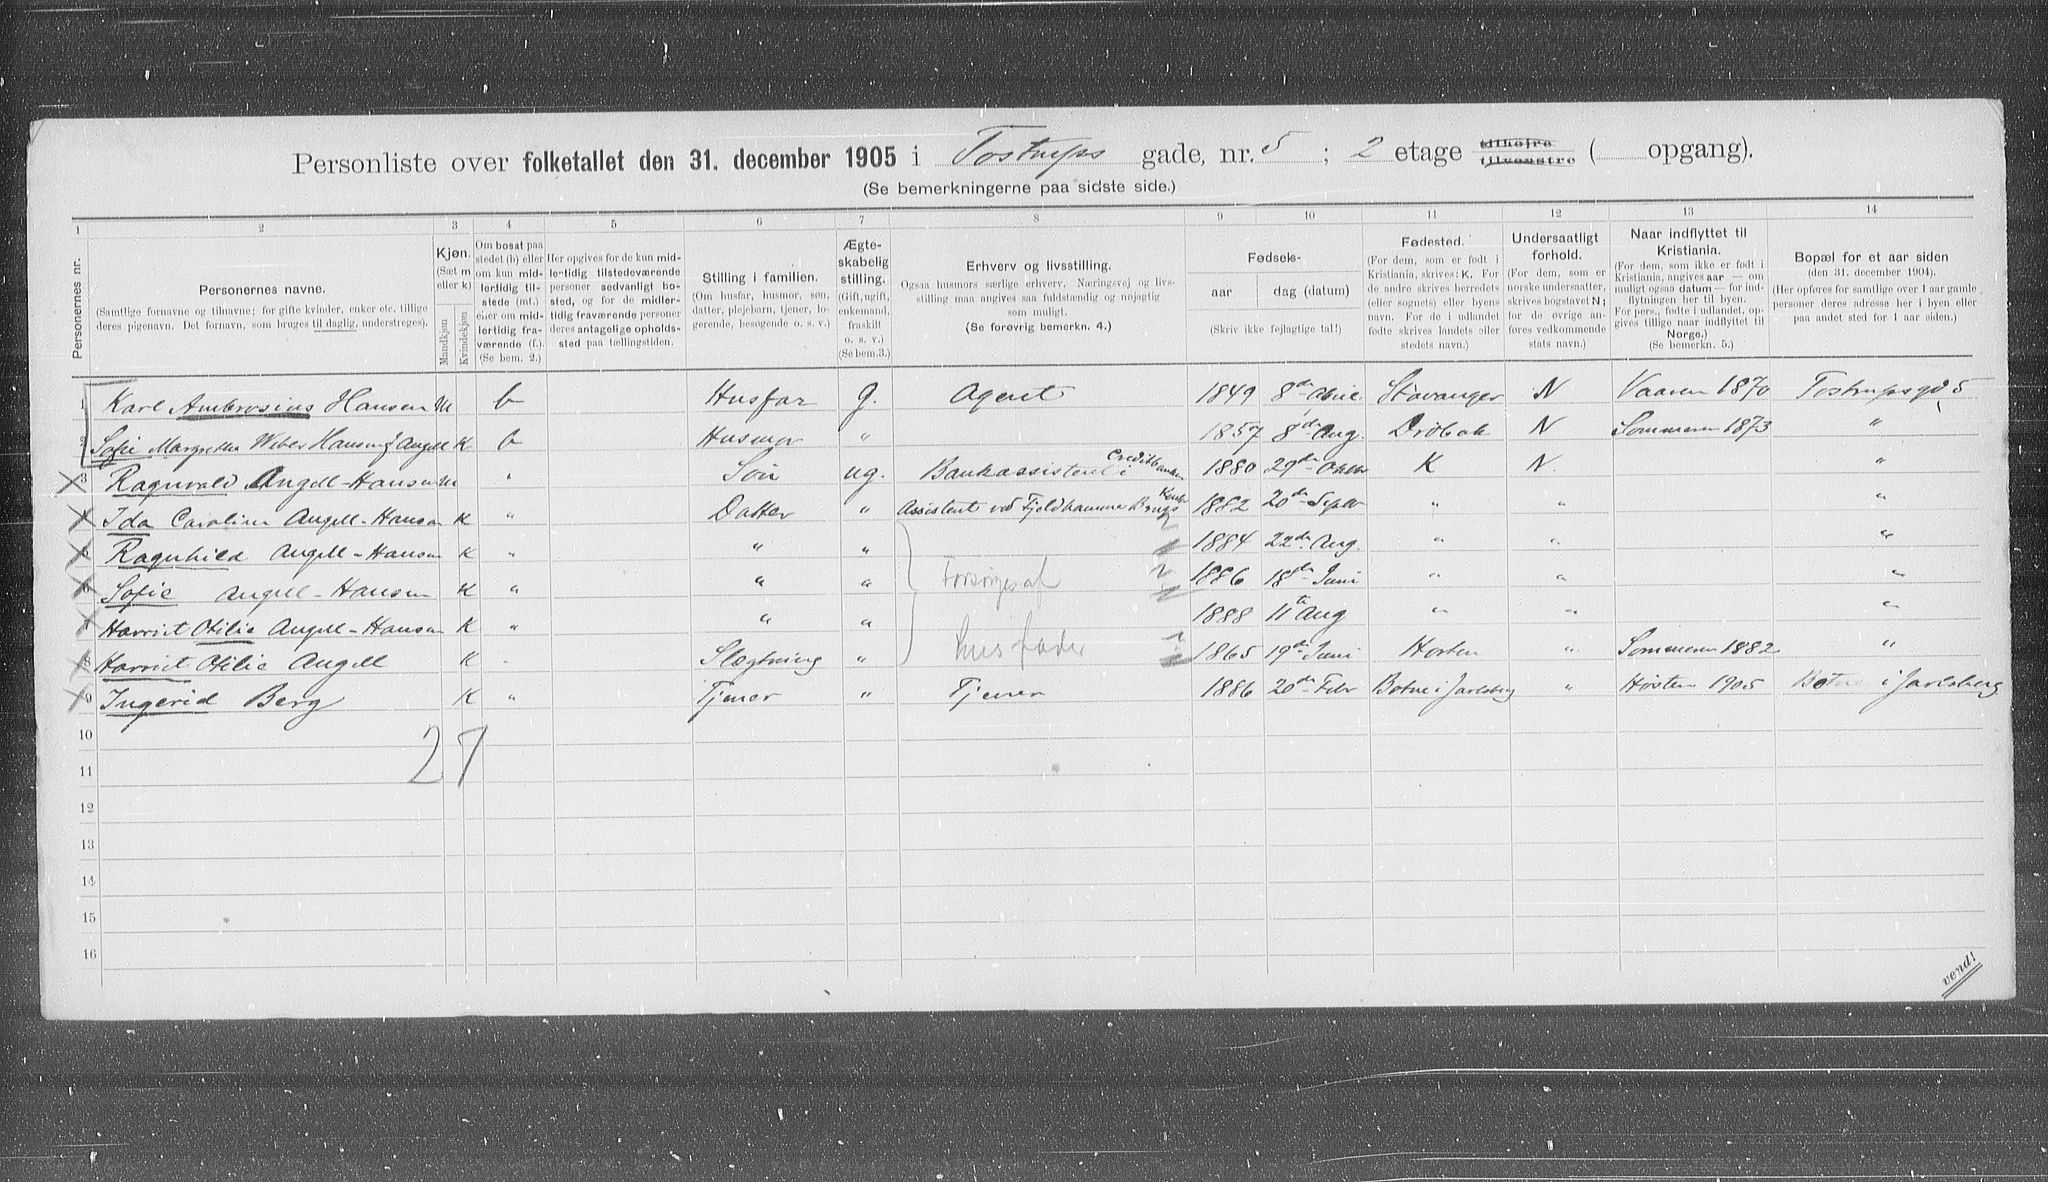 Personliste over folketallet den 31. december 1905 i Tostrups gade, nr. 5 ; 2 etage tilhøjre tilvenstre ( opgang).
(Se bemerkningerne paa sidste side.)
1 2 3 4 5 6 7 8 9 10 11 12 13 14
Personernes nr.
Personernes navne.
(Samtlige fornavne og tilnavne; for gifte kvinder, enker etc. tillige deres pigenavn. Det fornavn, som bruges til daglig, understreges).
Kjøn.
(Sæt m eller k)
Mandkjøn
Kvindekjøn
Om bosat paa stedet (b) eller om kun midlertidig tilstede (mt.) eller om midlertidig fraværende (f.). (Se bem. 2.)
Her opgives for de kun midlertidig tilstedeværende personer sedvanligt bosted, og for de midlertidig fraværende personer deres antagelige opholdssted paa tællingstiden.
Stilling i familien.
(Om husfar, husmor, søn, datter, plejebarn, tjener, logerende, besøgende o. s. v.)
Ægteskabelig stilling.
(Gift, ugift, enkemand, fraskilt o. s. v.)
(Se bem. 3.)
Erhverv og livsstilling.
Ogsaa husmors særlige erhverv. Næringsvej og livsstilling maa angives saa fuldstændig og nøjagtig som muligt.
(Se forøvrig bemerkn. 4.)
Fødsels-
aar
dag (datum)
(Skriv ikke fejlagtige tal!)
Fødested.
(For dem, som er født i Kristiania, skrives: K. For de andre skrives herredets (eller sognets) eller byens navn. For de i udlandet fødte skrives landets eller stedets navn.)
Undersaatligt forhold.
(For dem, som er norske undersaatter, skrives bogstavet N; for de øvrige anføres vedkommende stats navn.)
Naar indflyttet til Kristiania.
(For dem, som ikke er født i Kristiania, angives aar — om muligt ogsaa datum — for indflytningen her til byen. For pers., fødte i udlandet, opgives tillige naar indflyttet til Norge.)
(Se bemerkn. 5.)
Bopæl for et aar siden
(den 31. december 1904).
(Her opføres for samtlige over 1 aar gamle personer deres adresse her i byen eller paa andet sted for 1 aar siden.)
1 Karl Ambrosius Hansen M b Husfar g. Agent 1849 8de Stavanger N Vaaren 1870 Tostrupsgd 5
2 Sofie Margrethe Weber Hansen f Angell K b Husmor " 1857 8de Aug. Drøbak N Sommeren 1873 "
3 Ragnvald Angell-Hansen M " Søn ug. Bankassistent i Creditbanken 1880 29de Oktbr K N. "
4 Ida Caroline Angell-Hansen K " Datter " Assistent ved Fjeldhamme Brugs Kontor 1882 20de Septbr " " "
5 Ragnhild Angell-Hansen K " " " 1884 22de Aug. " " "
6 Sofie Angell-Hansen K " " " Forsørges af 1886 18de Juni " " "
7 Harriet Otilie Angell-Hansen K " " " 1888 11te Aug " " "
8 Harriet Otilie Angell K " Slægtning " husfader 1865 19de Juni Horten " Sommeren 1882 "
9 Ingerid Berg K " Tjener " Tjener 1886 20de Febr Botne i Jarlsberg " Høsten 1905 Botne i Jarlsberg
10
2 7
11
12
13
14
15
16
vend!